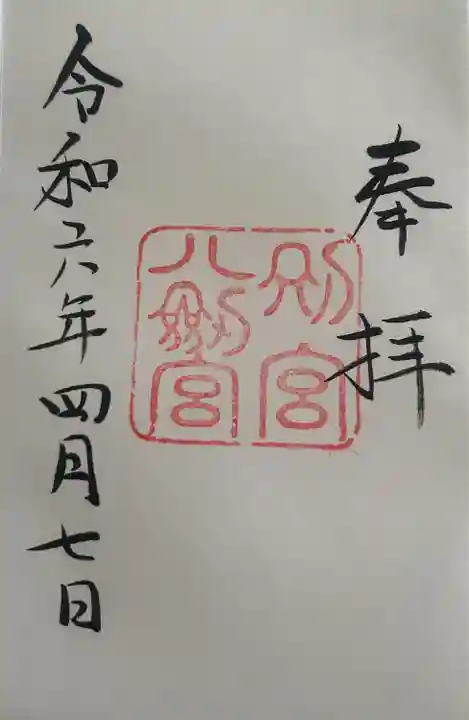 奉拝
別宮
八剱宮
令和六年四月七日